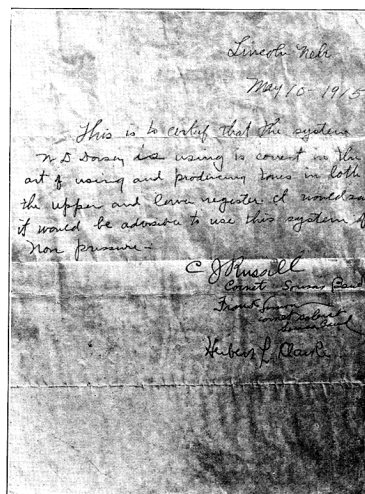 Lincoln Nebr
May 10 - 1915
This is to certify that the system
W D Dorsey is using is covert in the
art of using and producing tones in both
the upper and lower register I would say
it would be advisive to use this system of
Non pressure -
C J Russell
Cornet - Sousas Band
Frank Simon
cornet soloist
Sousas Band
Herbert L. Clarke